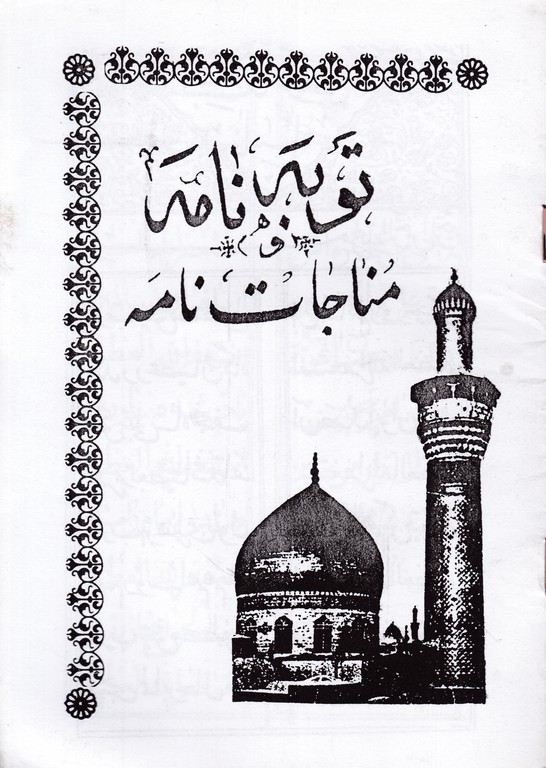 تَوبَه نامَه
و
مُناجات نامَه